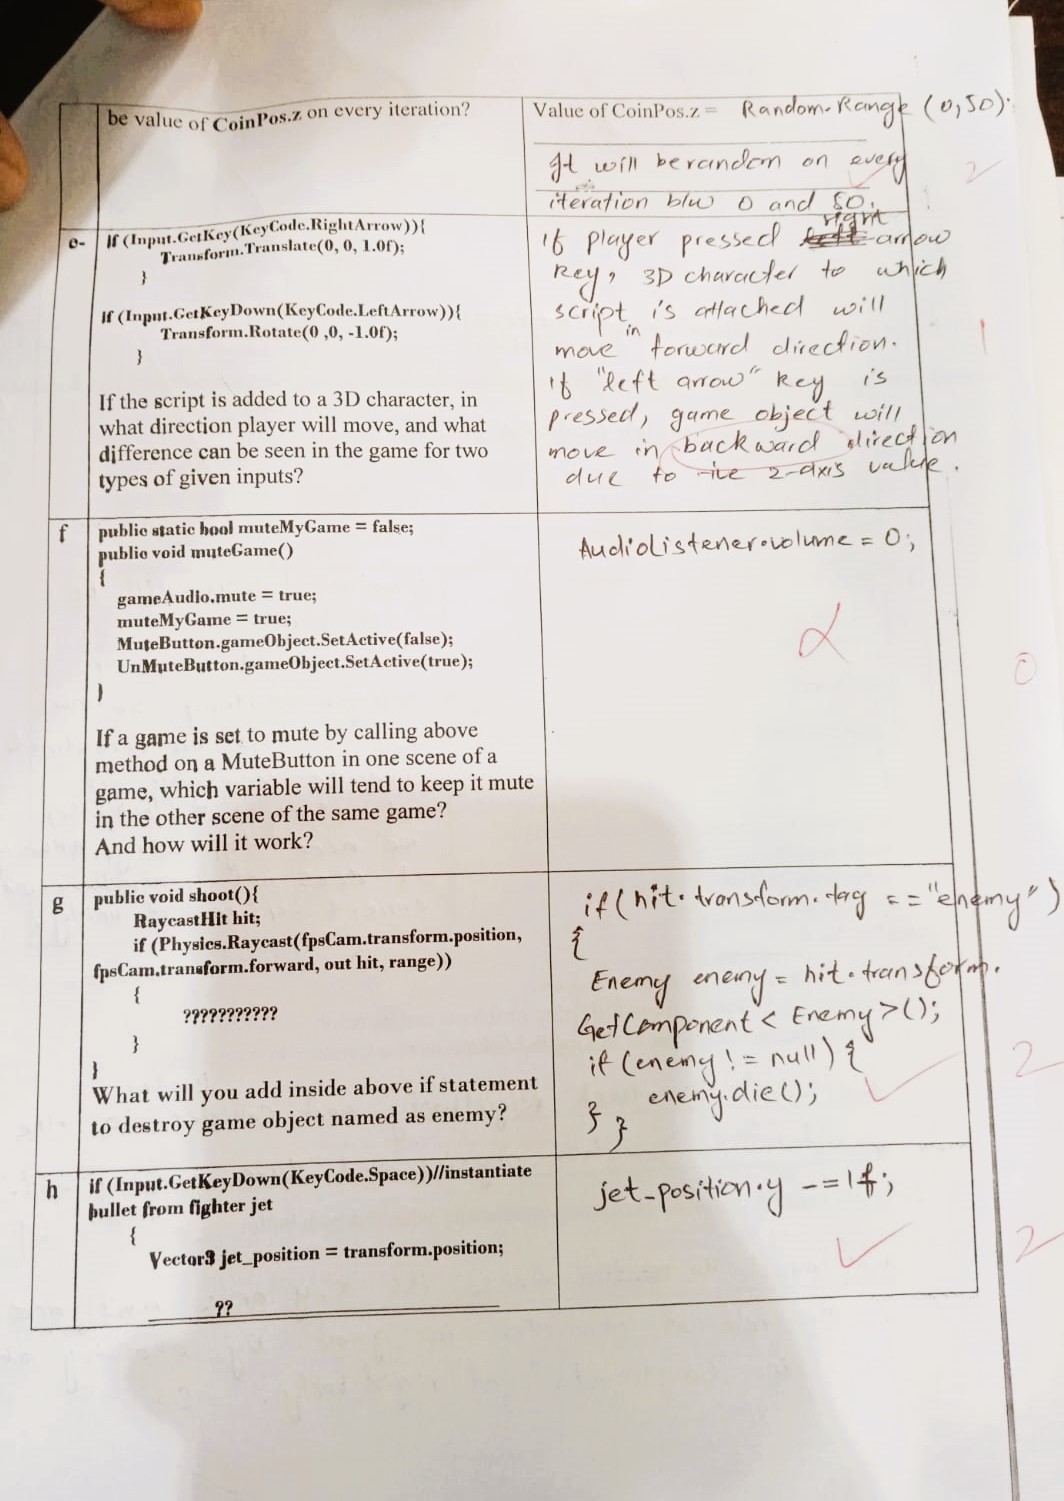 be value of CoinPos.z on every iteration?
Value of CoinPos.z = Random.Range (0,50);
It will be random on every
iteration b/w 0 and 50.
2
e-
If (Input.GetKey(KeyCode.RightArrow)){
Transform.Translate(0, 0, 1.0f);
}
If (Input.GetKeyDown(KeyCode.LeftArrow)){
Transform.Rotate(0 ,0, -1.0f);
}
If the script is added to a 3D character, in
what direction player will move, and what
difference can be seen in the game for two
types of given inputs?
right
If player pressed left arrow
key, 3D character to which
script is attached will
move in forward direction.
if "left arrow" key is
pressed, game object will
move in backward direction
due to -ive z-axis value.
1
f
public static bool muteMyGame = false;
public void muteGame()
{
gameAudio.mute = true;
muteMyGame = true;
MuteButton.gameObject.SetActive(false);
UnMuteButton.gameObject.SetActive(true);
}
If a game is set to mute by calling above
method on a MuteButton in one scene of a
game, which variable will tend to keep it mute
in the other scene of the same game?
And how will it work?
AudioListener.volume = 0;
0
g
public void shoot(){
RaycastHit hit;
if (Physics.Raycast(fpsCam.transform.position,
fpsCam.transform.forward, out hit, range))
{
???????????
}
}
What will you add inside above if statement
to destroy game object named as enemy?
if(hit.transform.tag == "enemy")
{
Enemy enemy = hit.transform.
GetComponent < Enemy >();
if (enemy != null) {
enemy.die();
} }
2
h
if (Input.GetKeyDown(KeyCode.Space))//instantiate
bullet from fighter jet
{
Vector3 jet_position = transform.position;
??
jet_position.y -= 1f;
2